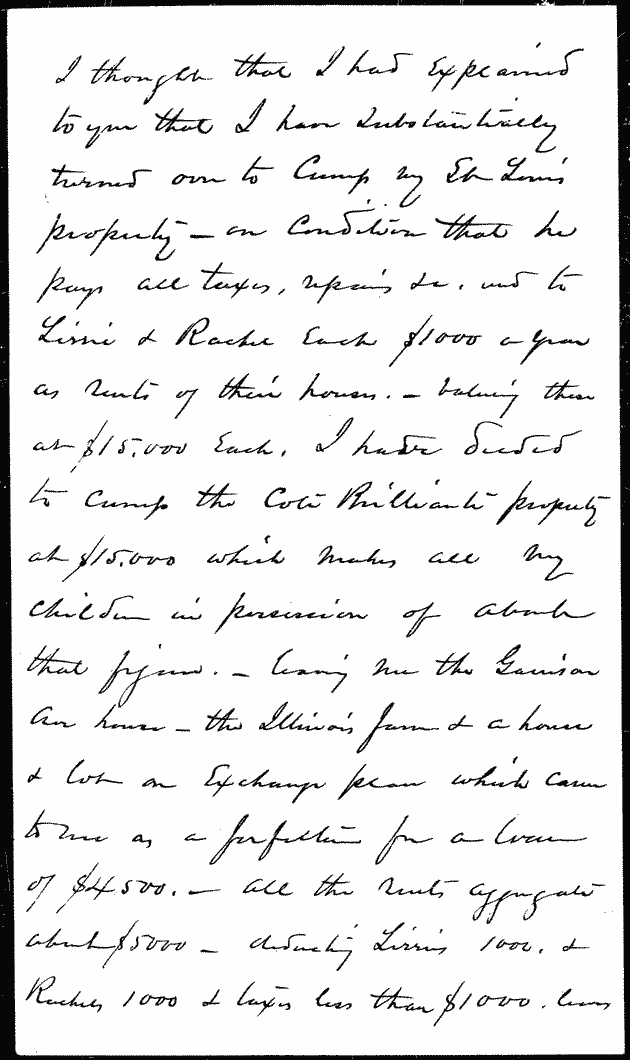 I thought that I had Explained
to you that I have Substantially
turned over to Cump my St Louis
property – on Condition that he
pays all taxes, repairs &c. and to
Lizzie & Rachel Each $1000 a year
as rents of their houses. – Valuing these
at $15,000 Each. I have deeded
to Cump the Cote Brilliante property
at $15,000 which makes all my
children in possession of about
that figure. – leaving me the Garrison
Av house – the Illinois farm & a house
& lot on Exchange place which came
to me as a forfeiture for a loan
of $4500. – all the rents aggregate
about $5000 – deducting Lizzies 1000. &
Rachels 1000 & taxes less than $1000. leaves